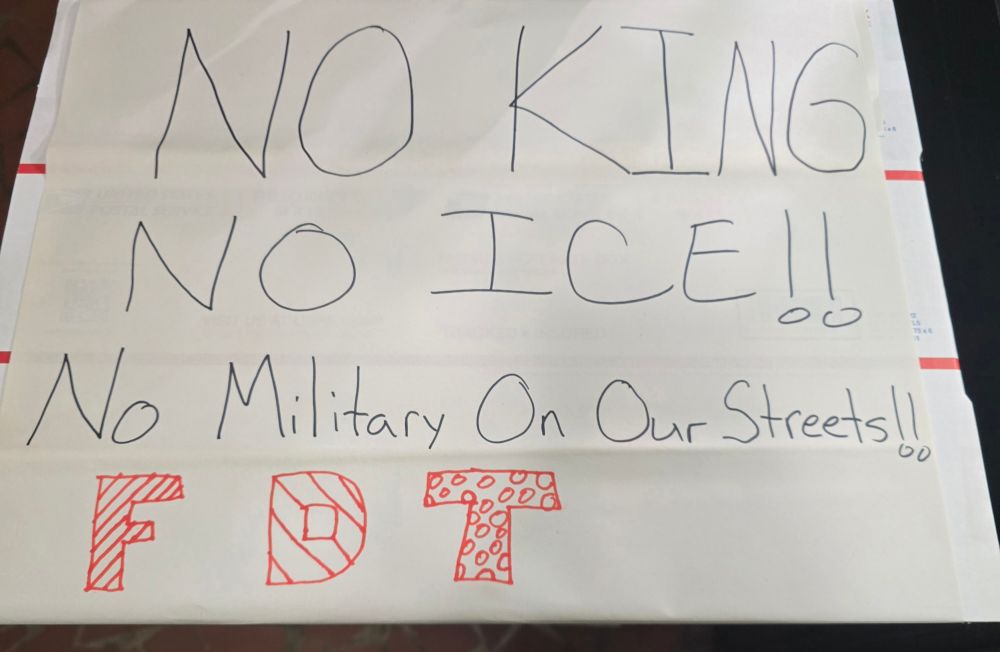 NO KING
NO ICE!!
No Military On Our Streets!!
FDT